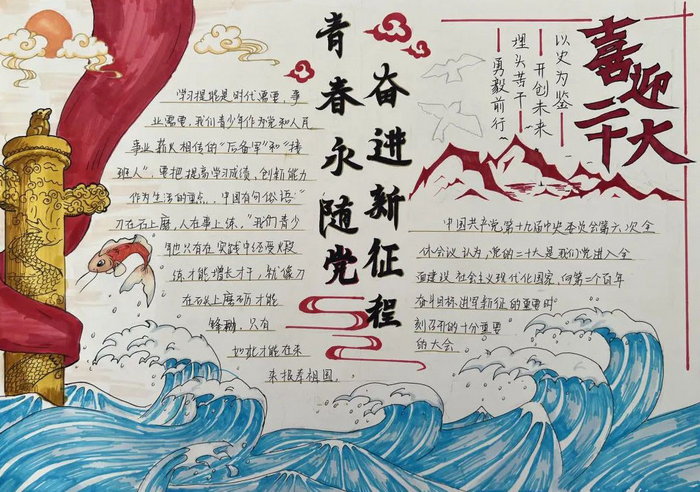 青春永随党
奋进新征程
喜迎
二十大
以史为鉴
开创未来
埋头苦干
勇毅前行
学习提能是时代需要,事
业需要,我们青少年作为党和人民
事业薪火相传的“后备军”和“接
班人”,要把提高学习成绩,创新能力
作为生活的重点,中国有句俗语:“
刀在石上磨,人在事上练,”我们青少
年也只有在实践中经受火煅
炼才能增长才干,就像刀
在石头上磨砺才能
锋利,只有
如此才能在未
来报养祖国。
中国共产党第十九届中央委员会第六次全
体会议认为,党的二十大是我们党进入全
面建设社会主义现代化国家,向第二个百年
奋斗目标进军新征的重要时
刻召开的十分重要
的大会